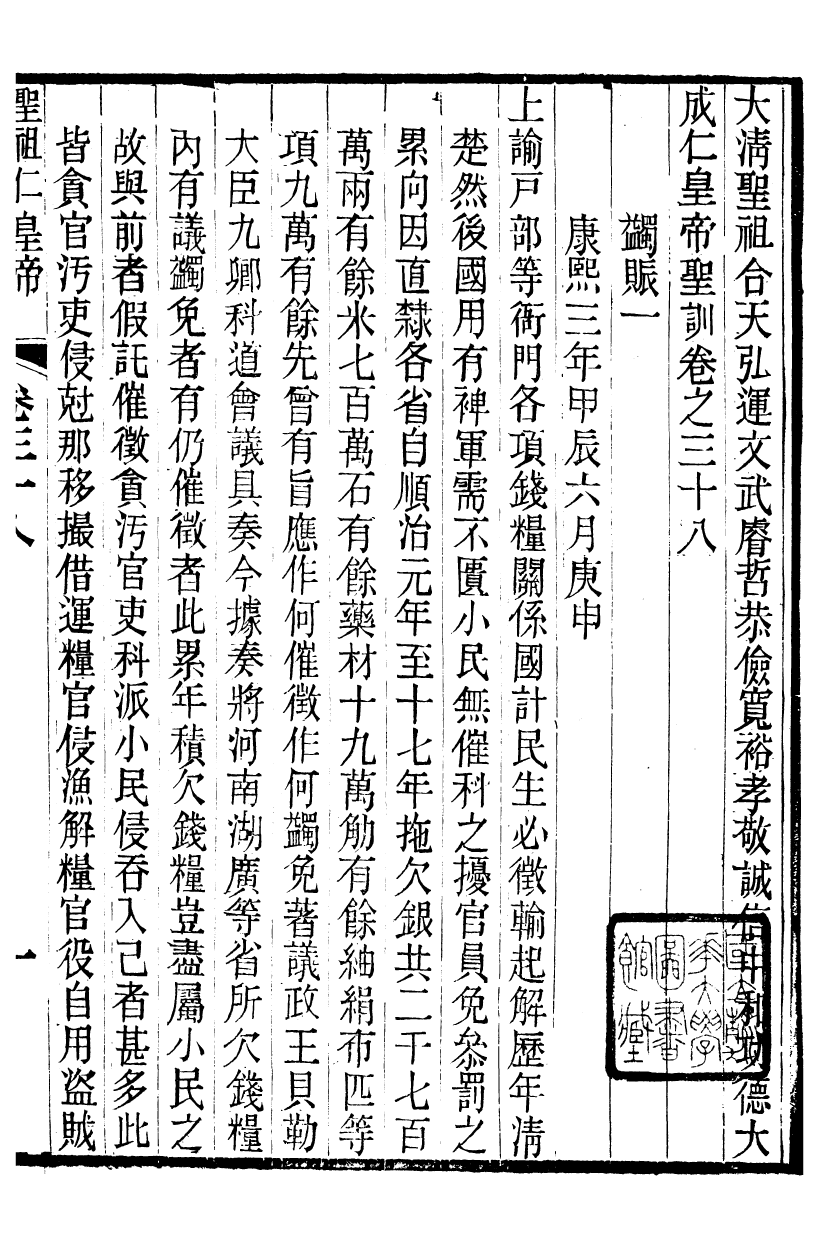 大清聖祖合天弘運文武睿哲恭儉寬裕孝敬誠信中和功德大
成仁皇帝聖訓卷之三十八
蠲賑一
康熙三年甲辰六月庚申
上諭戸部等衙門各項錢糧關係國計民生必徵輸起解歷年淸
楚然後國用有裨軍需不匱小民無催科之擾官員免叅罰之
累向因直隸各省自順治元年至十七年拖欠銀共二千七百
萬兩有餘米七百萬石有餘藥材十九萬觔有餘紬絹布匹等
項九萬有餘先曾有旨應作何催徵作何蠲免著議政王貝勒
大臣九卿科道會議具奏今據奏將河南湖廣等省所欠錢糧
內有議蠲免者有仍催徵者此累年積欠錢糧豈盡屬小民之
故與前者假託催徵貪汚官吏科派小民侵吞入己者甚多此
皆貪官汚吏侵尅那移撮借運糧官侵漁解糧官役自用盜賊
聖祖仁皇帝 卷三十八 一
圖書
館藏